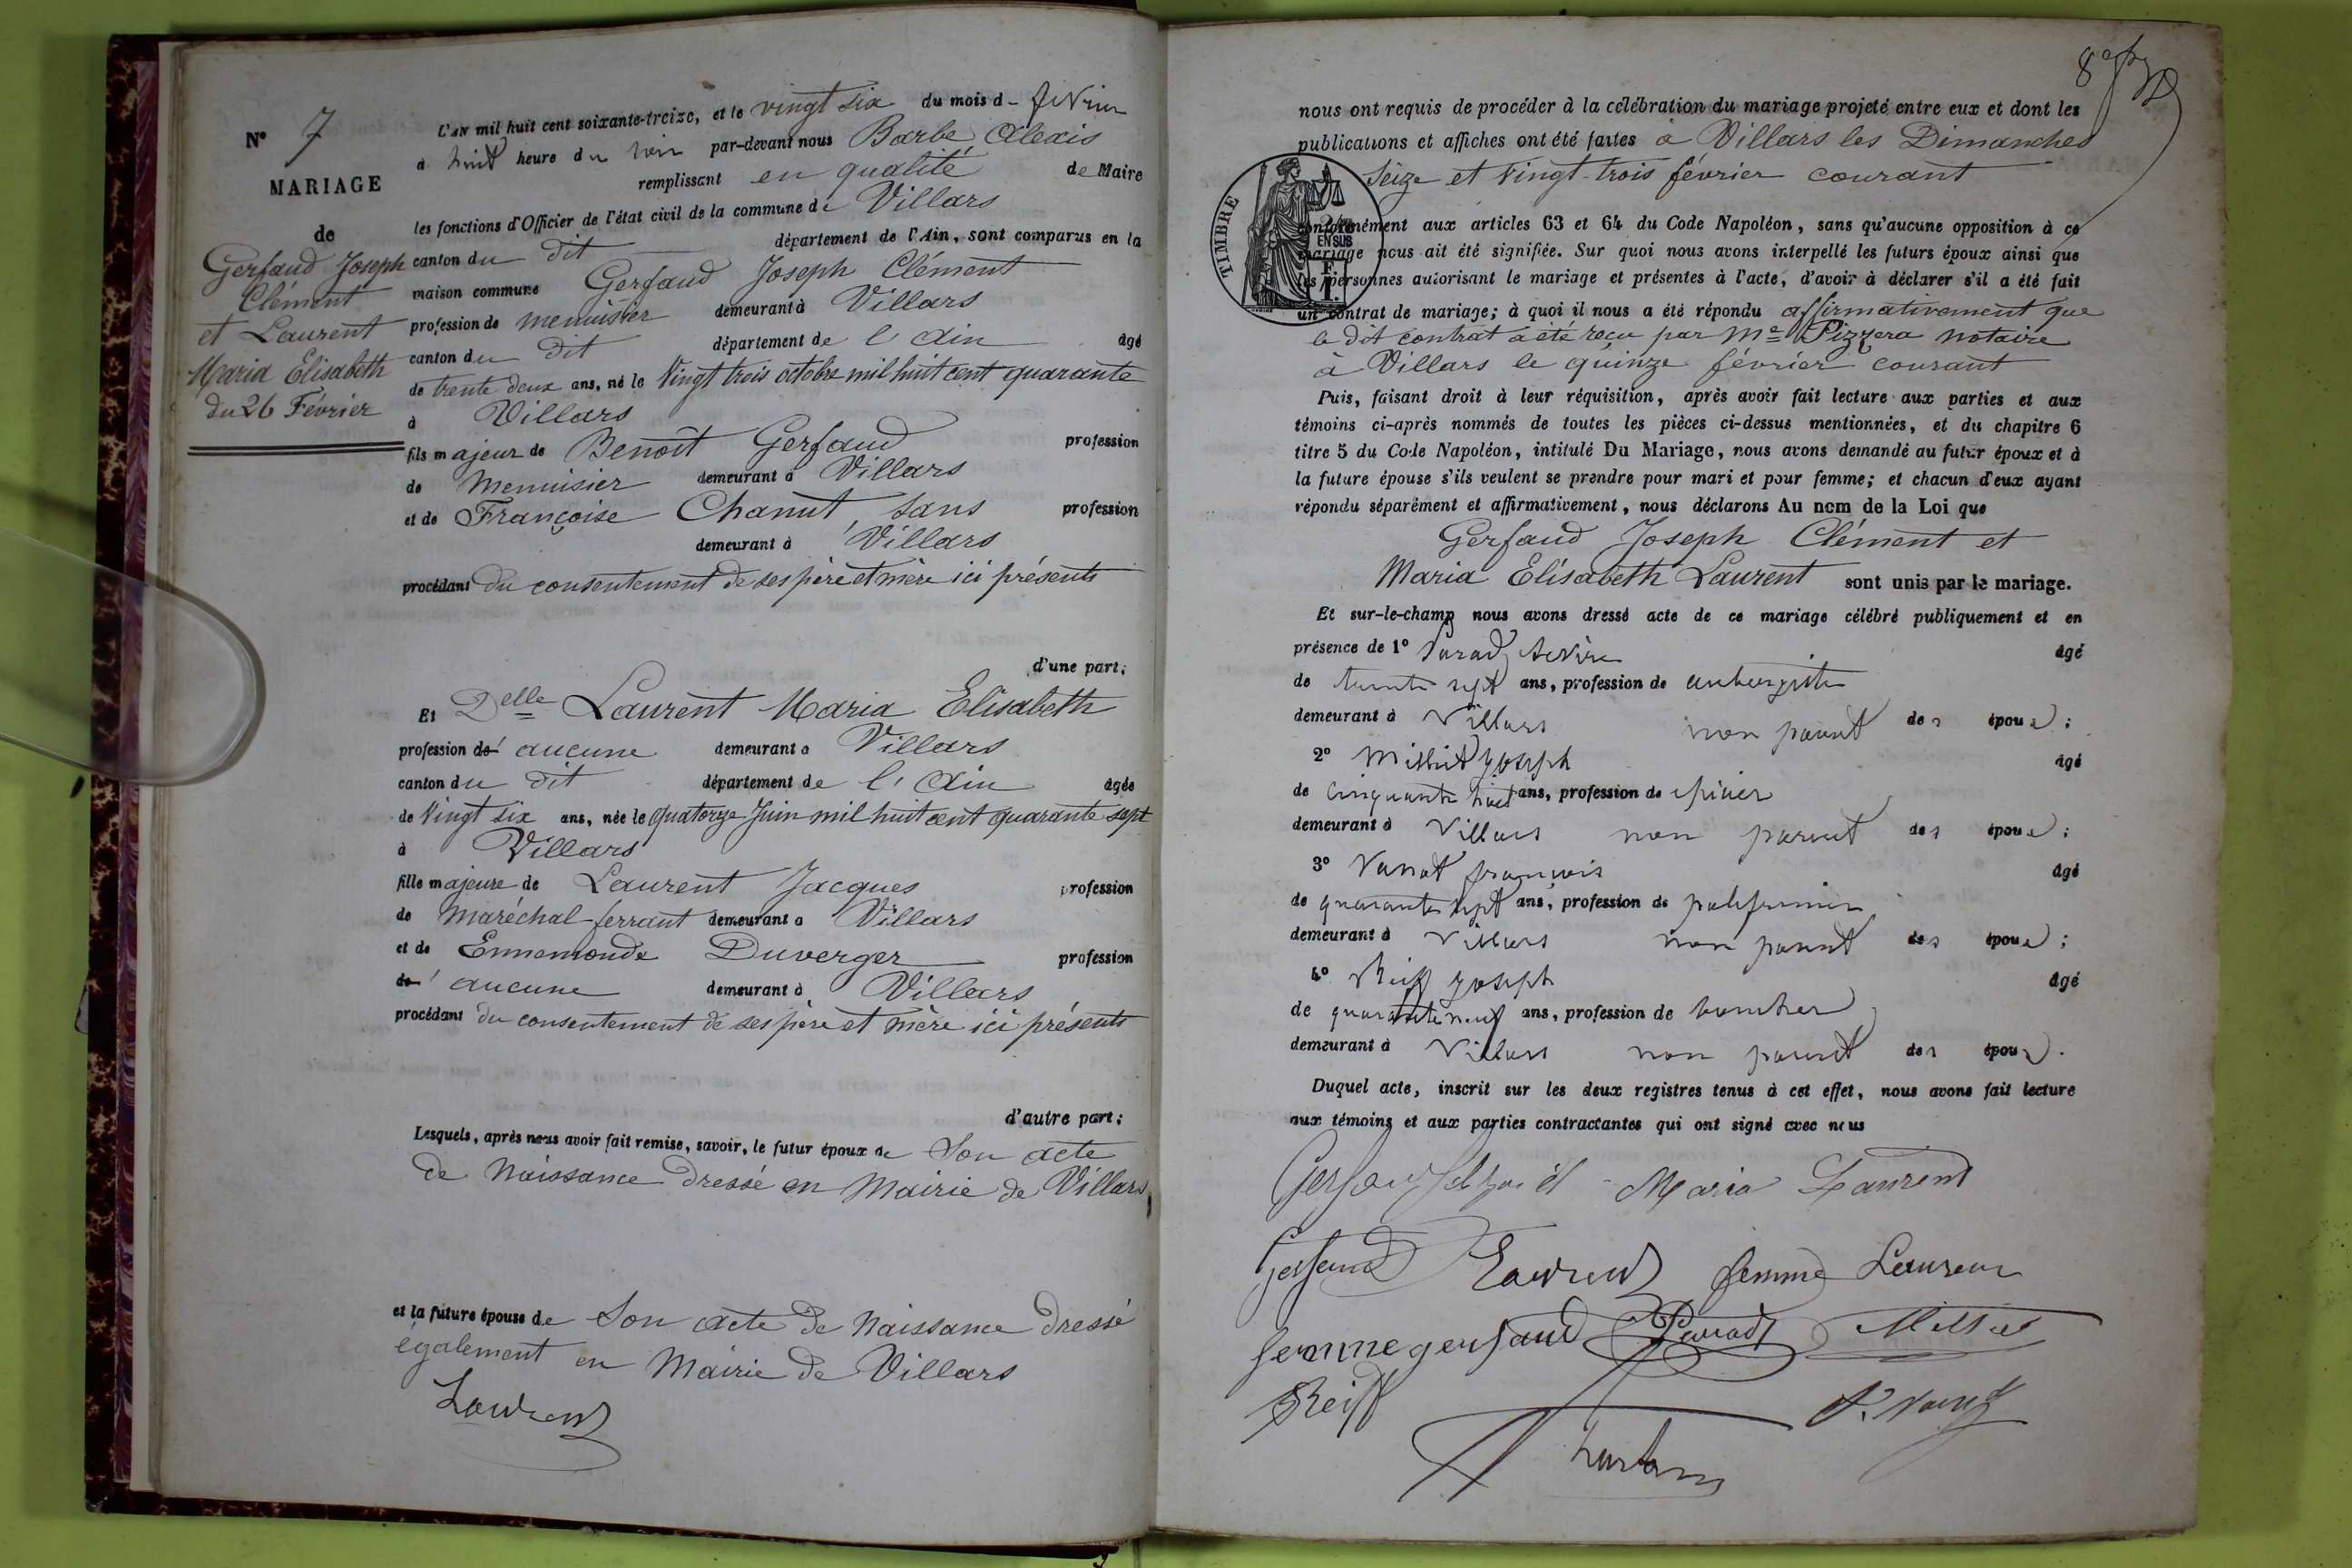 N° 7
MARIAGE
de
Gerfaud Joseph
Clément
et Laurent
Maria Elisabeth
du 26 Février
L'AN mil huit cent soixante-treize, et le vingt six du mois d- février
à huit heure du soir par-devant nous Barbe, Alexis
remplissant en qualité de Maire
les fonctions d'Officier de l'état civil de la commune de Villars
canton du dit département de l'Ain, sont comparus en la
maison commune Gerfaud Joseph Clément
profession de menuisier demeurant à Villars
canton du dit département de l'Ain âgé
de trente deux ans, né le Vingt trois octobre mil huit cent quarante
à Villars
fils majeur de Benoît Gerfaud profession
de Menuisier demeurant à Villars
et de Françoise Chanut, sans profession
demeurant à Villars
procédant du consentement de ses père et mère ici présents
d'une part;
Et Delle Laurent Maria Elisabeth
profession de aucune demeurant à Villars
canton du dit département de l'Ain âgée
de Vingt six ans, née le quatorze Juin mil huit cent quarante sept
à Villars
fille majeure de Laurent Jacques profession
de Maréchal-ferrant demeurant à Villars
et de Ennemonde Duverger profession
de aucune demeurant à Villars
procédant du consentement de ses père et mère ici présents
d'autre part;
Lesquels, après nous avoir fait remise, savoir, le futur époux de Son acte
de Naissance dressé en Mairie de Villars
et la future épouse de Son acte de Naissance dressé
également en Mairie de Villars
Laurent
8
nous ont requis de procéder à la célébration du mariage projeté entre eux et dont les
publications et affiches ont été faites à Villars les Dimanches
Seize et Vingt-trois février courant
TIMBRE
EN SUS
conformément aux articles 63 et 64 du Code Napoléon, sans qu'aucune opposition à ce
mariage nous ait été signifiée. Sur quoi nous avons interpellé les futurs époux ainsi que
les personnes autorisant le mariage et présentes à l'acte, d'avoir à déclarer s'il a été fait
un contrat de mariage; à quoi il nous a été répondu affirmativement que
le dit contrat a été reçu par Me Pizzera notaire
à Villars le quinze février courant
Puis, faisant droit à leur réquisition, après avoir fait lecture aux parties et aux
témoins ci-après nommés de toutes les pièces ci-dessus mentionnées, et du chapitre 6
titre 5 du Code Napoléon, intitulé Du Mariage, nous avons demandé au futur époux et à
la future épouse s'ils veulent se prendre pour mari et pour femme; et chacun d'eux ayant
répondu séparément et affirmativement, nous déclarons Au nom de la Loi que
Gerfaud Joseph Clément et
Maria Elisabeth Laurent sont unis par le mariage.
Et sur-le-champ nous avons dressé acte de ce mariage célébré publiquement et en
présence de 1° âgé
de trente sept ans, profession de aubergiste
demeurant à Villars non parent des époux;
2° Milliet Joseph âgé
de cinquante huit ans, profession de épicier
demeurant à Villars non parent des époux;
3° françois âgé
de quarante sept ans, profession de
demeurant à Villars non parent des époux;
4° Reiff Joseph âgé
de quarante neuf ans, profession de boucher
demeurant à Villars non parent des époux.
Duquel acte, inscrit sur les deux registres tenus à cet effet, nous avons fait lecture
aux témoins et aux parties contractantes qui ont signé avec nous
Maria Laurent
Gerfaud Laurent femme Laurent
femme gerfaud Millet
Reiff